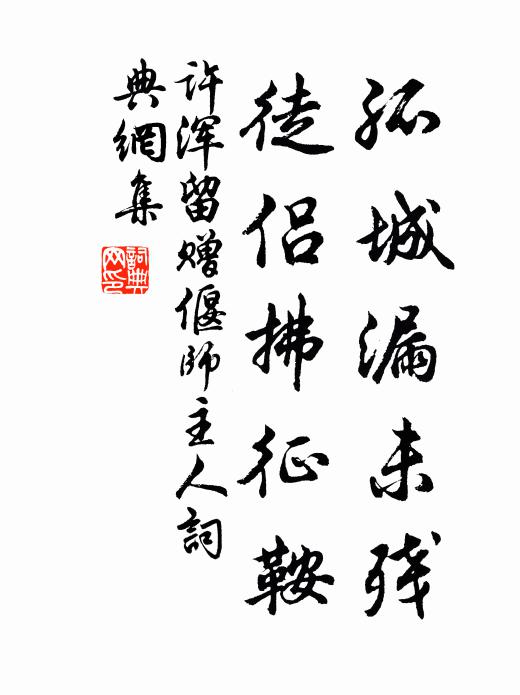 孤城漏未残
徒侣拂征鞍
许浑留赠偃师主人詞
典網集
詞典
网印